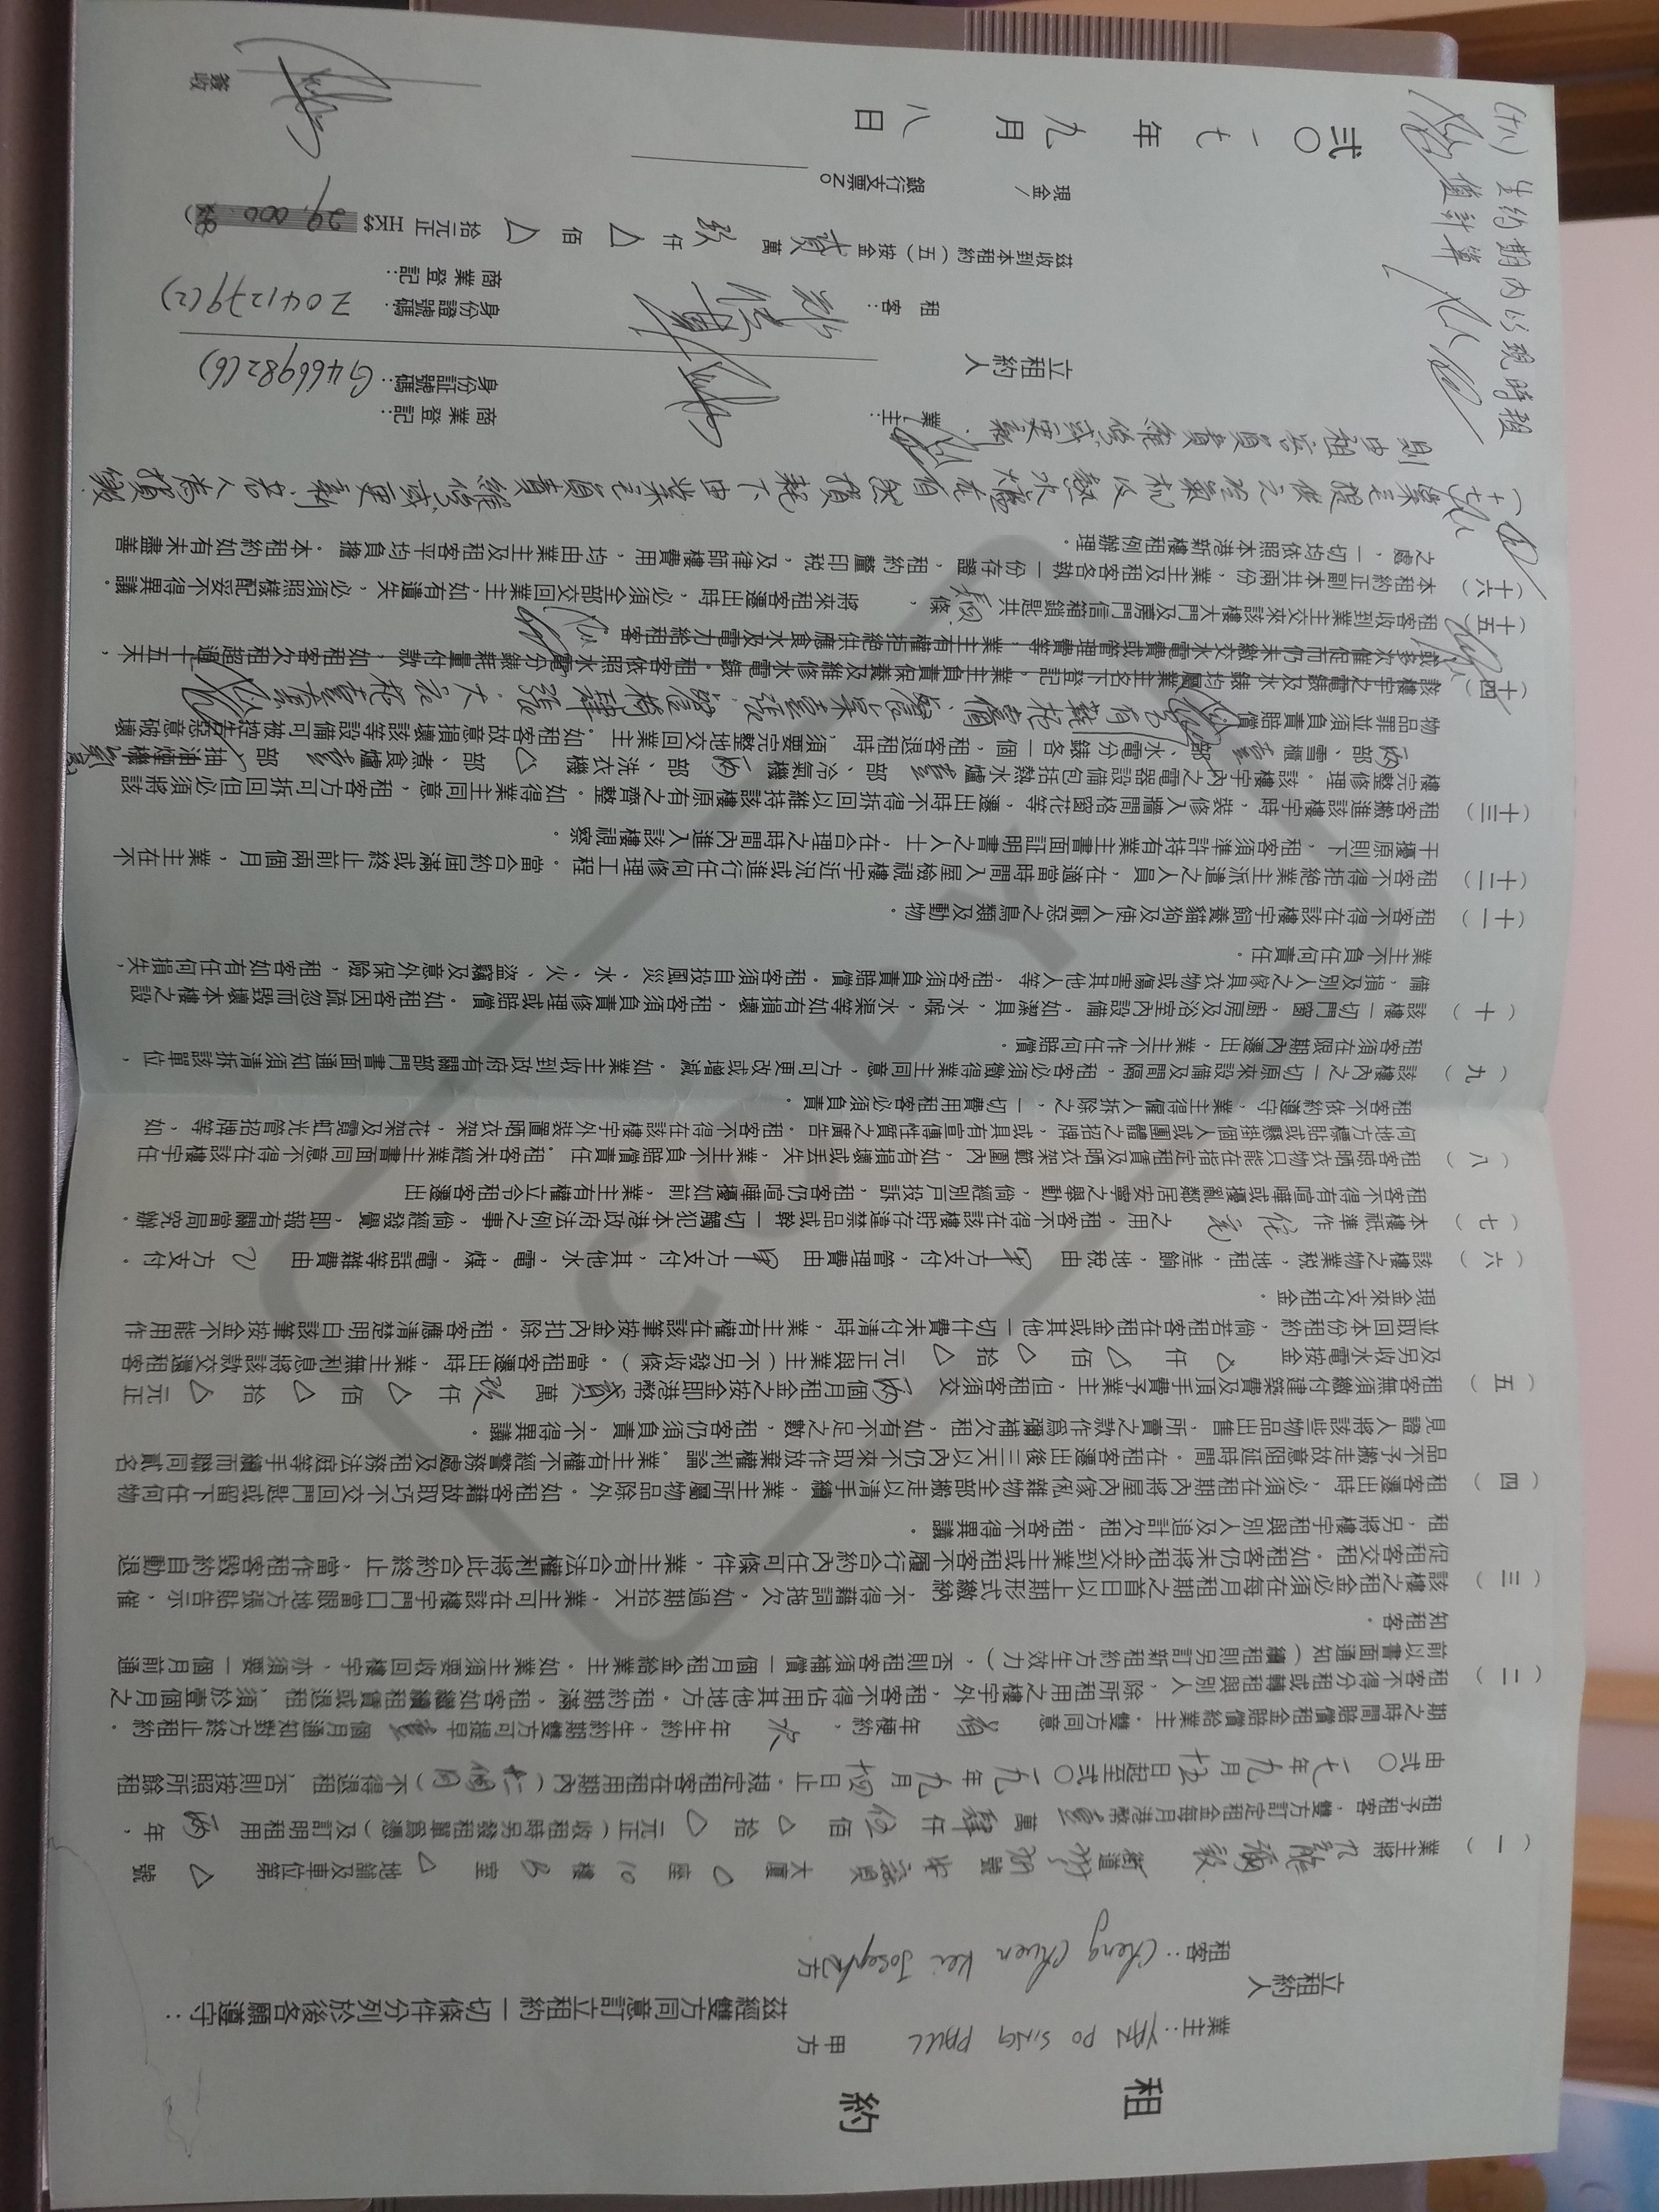 租約
業主：YAN PO SING PAUL 甲方
立租約人
租客：Cheng Chuen Kei Joseph 乙方
茲經雙方同意訂立租約一切條件分列於後各願遵守：
（一） 業主將九龍 街道 號 大廈 △ 座 10 樓 B 室 △ 地舖及車位第 △ 號
租予租客，雙方訂定租金每月港幣壹萬肆仟伍佰△拾△元正（收租時另發租單爲憑）及訂明租用兩年，
由弍〇一七年九月十五日起至弍〇一九年九月十四日止。規定租客在租用期內（十二個月）不得退租，否則按照所餘租
期之時間賠償租金賠償給業主。雙方同意 年梗約， 年生約，生約期雙方可提早壹個月通知對方終止租約。
（二） 租客不得分租或轉租與別人，除所租用之樓宇外，租客不得佔用其他地方。租約期滿，租客如繼續租賃或退租，須於壹個月之
前以書面通知（續租則另訂新租約方生效力），否則租客須補償一個月租金給業主。如業主須要收回樓宇，亦須要一個月前通
知租客。
（三） 該樓之租金必須在每月租期之首日以上期形式繳納，不得藉詞拖欠，如過期拾天，業主可在該樓宇門口當眼地方張貼告示，催
促租客交租。如租客仍未將租金交到業主或租客不履行合約內任可條件，業主有合法權利將此合約終止，當作租客毀約自動退
租，另將樓宇租與別人及追討欠租，租客不得異議。
（四） 租客遷出時，必須在租期內將屋內傢俬雜物全部搬走以清手續，業主所屬物品除外。如租客藉故取巧不交回門匙或留下任何物
品不予搬走故意阻延時間。在租客遷出後三天以內仍不來取作放棄權利論。業主有權不經警務處及租務法庭等手續而聯同貳名
見證人將該些物品出售，所賣之款作爲彌補欠租，如有不足之數，租客仍須負責，不得異議。
（五） 租客無須繳付建築費及頂手費予業主，但租客須交兩個月租金之按金即港幣貳萬玖仟△佰△拾△元正
及另收水電按金△仟△佰△拾△元正與業主（不另發收條）。當租客遷出時，業主無利息將該款交還租客
並取回本份租約，倘若租客在租金或其他一切什費未付清時，業主有權在該筆按金內扣除。租客應清楚明白該筆按金不能用作
現金來支付租金。
（六） 該樓之物業税，地租，差餉，地稅由甲方支付，管理費由甲方支付，其他水，電，煤，電話等雜費由乙方支付。
（七） 本樓祇準作住宅之用，租客不得在該樓貯存違禁品或幹一切觸犯本港政府法例之事，倘經發覺，即報有關當局究辦。
租客不得有喧嘩或擾亂鄰居安寧之舉動，倘經別戶投訴，租客仍喧嘩擾如前，業主有權立令租客遷出
（八） 租客晾晒衣物只能在指定租賃及晒衣架範圍內，如有損壞或丟失，業主不負賠償責任。租客未經業主書面同意不得在該樓宇任
何地方標貼或懸掛個人或團體之招牌，或具有宣傳性質之廣告。租客不得在該樓宇外裝置晒衣架，花架及霓虹光管招牌等，如
租客不依約遵守，業主得僱人拆除之，一切費用租客必須負責。
（九） 該樓內之一切原來設備及間隔，租客必須徵得業主同意，方可更改或增減。如業主收到政府有關部門書面通知須清拆該單位，
租客須在限期內遷出，業主不作任何賠償。
（十） 該樓一切門窗，廚房及浴室內設備，如潔具，水喉，水渠等如有損壞，租客須負責修理或賠償。如租客因疏忽而毀壞本樓之設
備，損及別人之傢具衣物或傷害其他人等，租客須負責賠償。租客須自投風災、水、火、盜竊及意外保險，租客如有任何損失，
業主不負任何責任。
（十一） 租客不得在該樓宇飼養貓狗及使人厭惡之鳥類及動物。
（十二） 租客不得拒絶業主派遣之人員，在適當時間入屋檢視樓宇近況或進行任何修理工程。當合約屆滿或終止前兩個月，業主在不
干擾原則下，租客須準許持有業主書面証明書之人士，在合理之時間內進入該樓視察。
（十三） 租客搬進該樓宇時，裝修入牆間格窗花等，遷出時不得拆回以維持該樓原有之齊整。如得業主同意，租客方可拆回但必須將該
樓完整修理。該樓宇內之電器設設備包括熱水爐壹部、冷氣機兩部、洗衣機△部、煮食爐壹部、抽油煙機
兩部、雪櫃壹部、水、電分錶各一個，租客退租時，須要完整地交回業主。如租客故意損壞該等設備可被控告惡意破壞
物品罪並須負責賠償
（十四） 該樓宇之電錶及水錶均屬業主名下登記，業主負責保養及維修水電錶。租客依照水電分錶耗量付款，如租客欠租超過十五天，
或多次催促而仍未繳交水電費或管理費等，業主有權拒絶供應食水及電力給租客
（十五） 租客收到業主交來該樓大門及房門信箱鎖匙共 條，將來租客遷出時，必須全部交回業主，如有遺失，必須照樣配妥不得異議
（十六） 本租約正副本共兩份，業主及租客各執一份存證，租約釐印税，及律師樓費用，均由業主及租客平均負擔。本租約如有未盡善
之處，一切均依照本港新樓租例辦理。
（十七） 業主提供之冷氣機及熱水爐在自然損耗下由業主負責維修或更新，若人為損毀
則由租客負責維修或更新
（十八） 生約期內以現時租
值計算
立租約人
業主：
商業登記：
身份證號碼：G466982(6)
租客：
身份證號碼：Z041279(2)
商業登記：
茲收到本租約（五）按金貳萬玖仟△佰△拾元正 HK$ 29,000
現金/
銀行支票NO
弍〇一七年九月八日
簽收
COPY